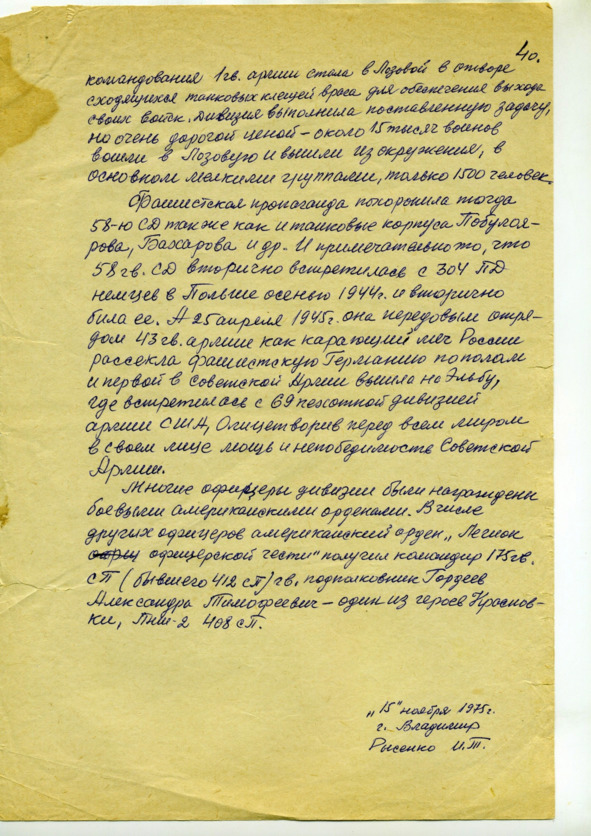 40.
командования 1гв. армии стала в Лозовой в створе
сходящихся танковых клещей врага для обеспечения выхода
своих войск. Дивизия выполнила поставленную задачу,
но очень дорогой ценой – около 15 тысяч воинов
вошли в Лозовую и вышли из окружения, в
основном мелкими группами, только 1500 человек.
Фашистская пропаганда похоронила тогда
58-ю СД также как и танковые корпуса Побулоя-
рова, Бахарова и др. И примечательно то, что
58гв. СД вторично встретилась с 304 ПД
немцев в Польше осенью 1944г. и вторично
била ее. А 25 апреля 1945г. она передовым отря-
дом 43гв. армии как карающий меч России
рассекла фашистскую Германию пополам
и первой в Советской Армии вышла на Эльбу,
где встретилась с 69 пехотной дивизией
армии США, Олицетворив перед всем миром
в своем лице мощь и непобедимость Советской
Армии.
Многие офицеры дивизии были награждены
боевыми американскими орденами. В числе
других офицеров американский орден „Легион
офицерской чести" получил командир 175гв.
сп (бывшего 412 сп) гв. подполковник Гордеев
Александра Тимофеевич – один из героев Красnов-
ки, ПНШ-2 408 сП.
„15" ноября 1975г.
г. Владимир
Рысенко И.Т.